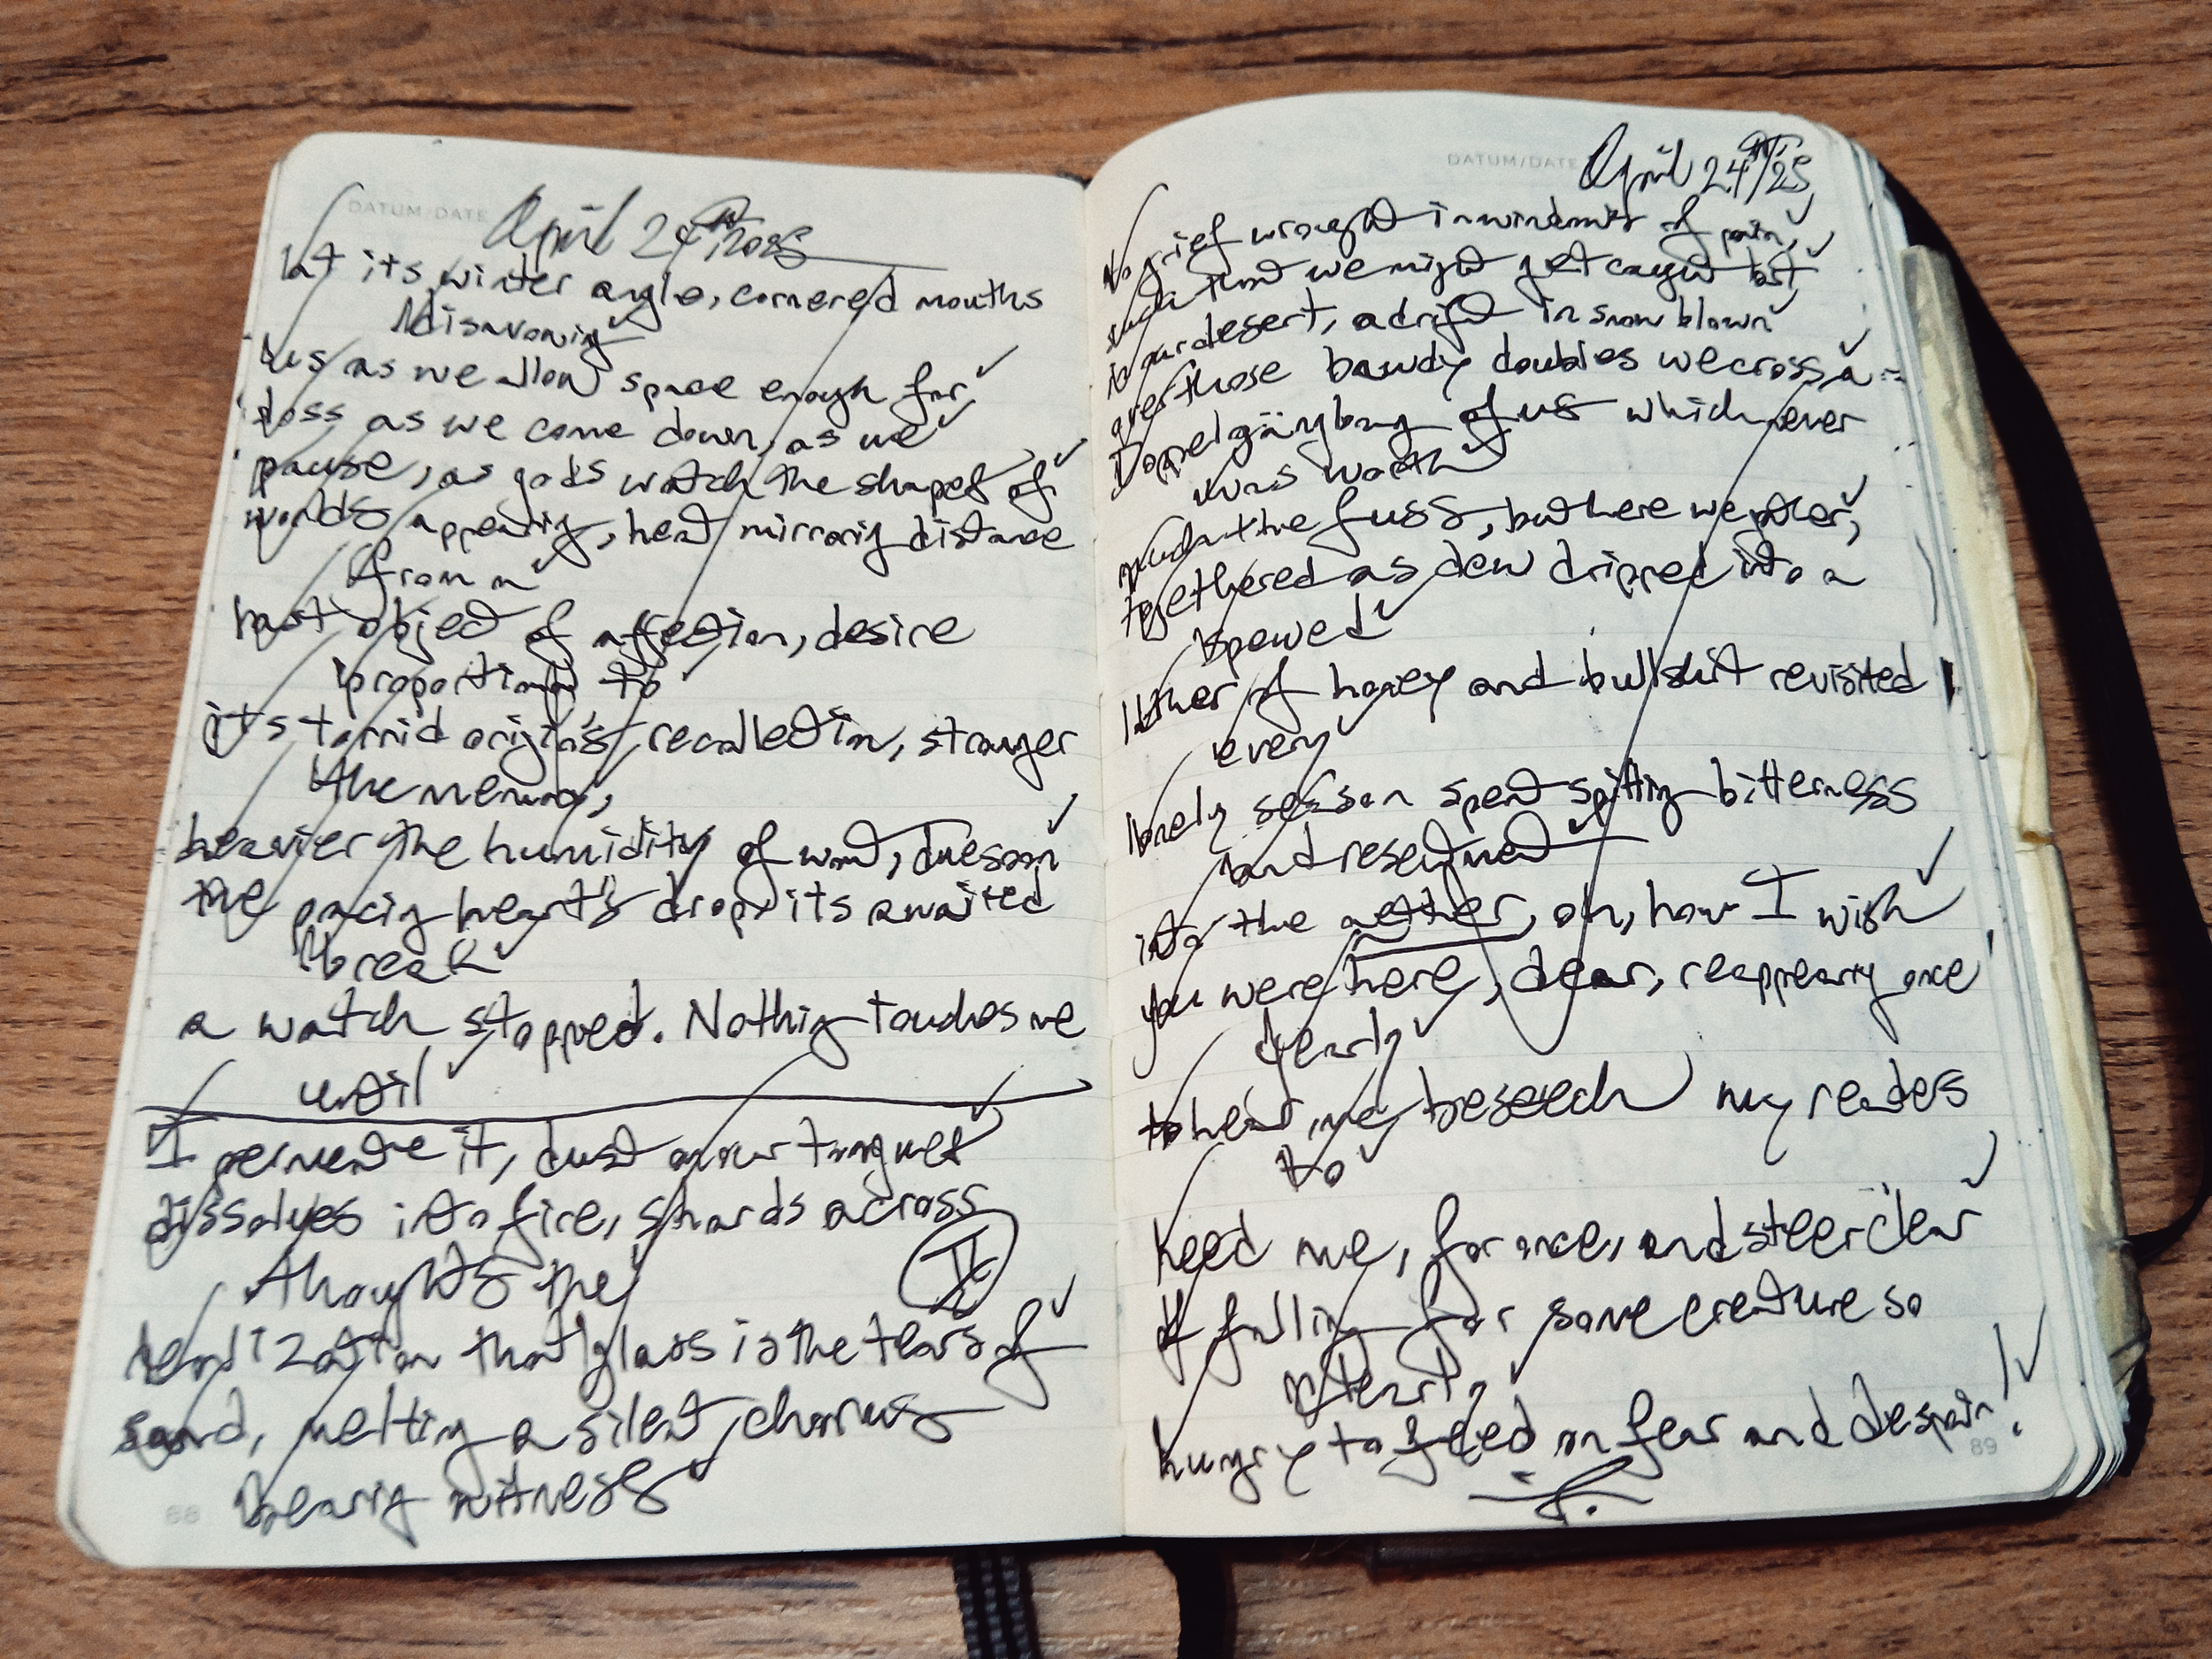 DATUM/DATE April 24th 2025
at its winter angle, cornered mouths
disavowing
us as we allow space enough for
loss as we come down, as we
pause, as gods watch the shapes of
worlds appearing, heat mirroring distance
from a
lost object of affection, desire
proportional to
its torrid origin's recollection, stronger
the memory,
heavier the humidity of want, due soon
the pacing heart's drop, its awaited
break
a watch stopped. Nothing touches me
until
I permeate it, dust on our tongues
dissolves into fire, shards across
thoughts the
II
realization that glass is the tears of
sand, melting a silent chorus
bearing witness
88
DATUM/DATE April 24th/25
to grief wrought in windmits of pain,
such that we might get caught lost
in our desert, adrift in snow blown
over those bawdy doubles we cross, a
Doppelgängbang of us which never
was worth
much the fuss, but here we are,
togethered as dew dripped into a
spewed
lither of honey and bullshit revisited
every
lonely session spent spitting bitterness
and resentment
into the aether, oh, how I wish
you were here, dear, reappearing once
yearly
to hear me beseech my readers
to
heed me, for once, and steer clear
of falling for some creature so
utterly
hungry to feed on fear and despair!
89